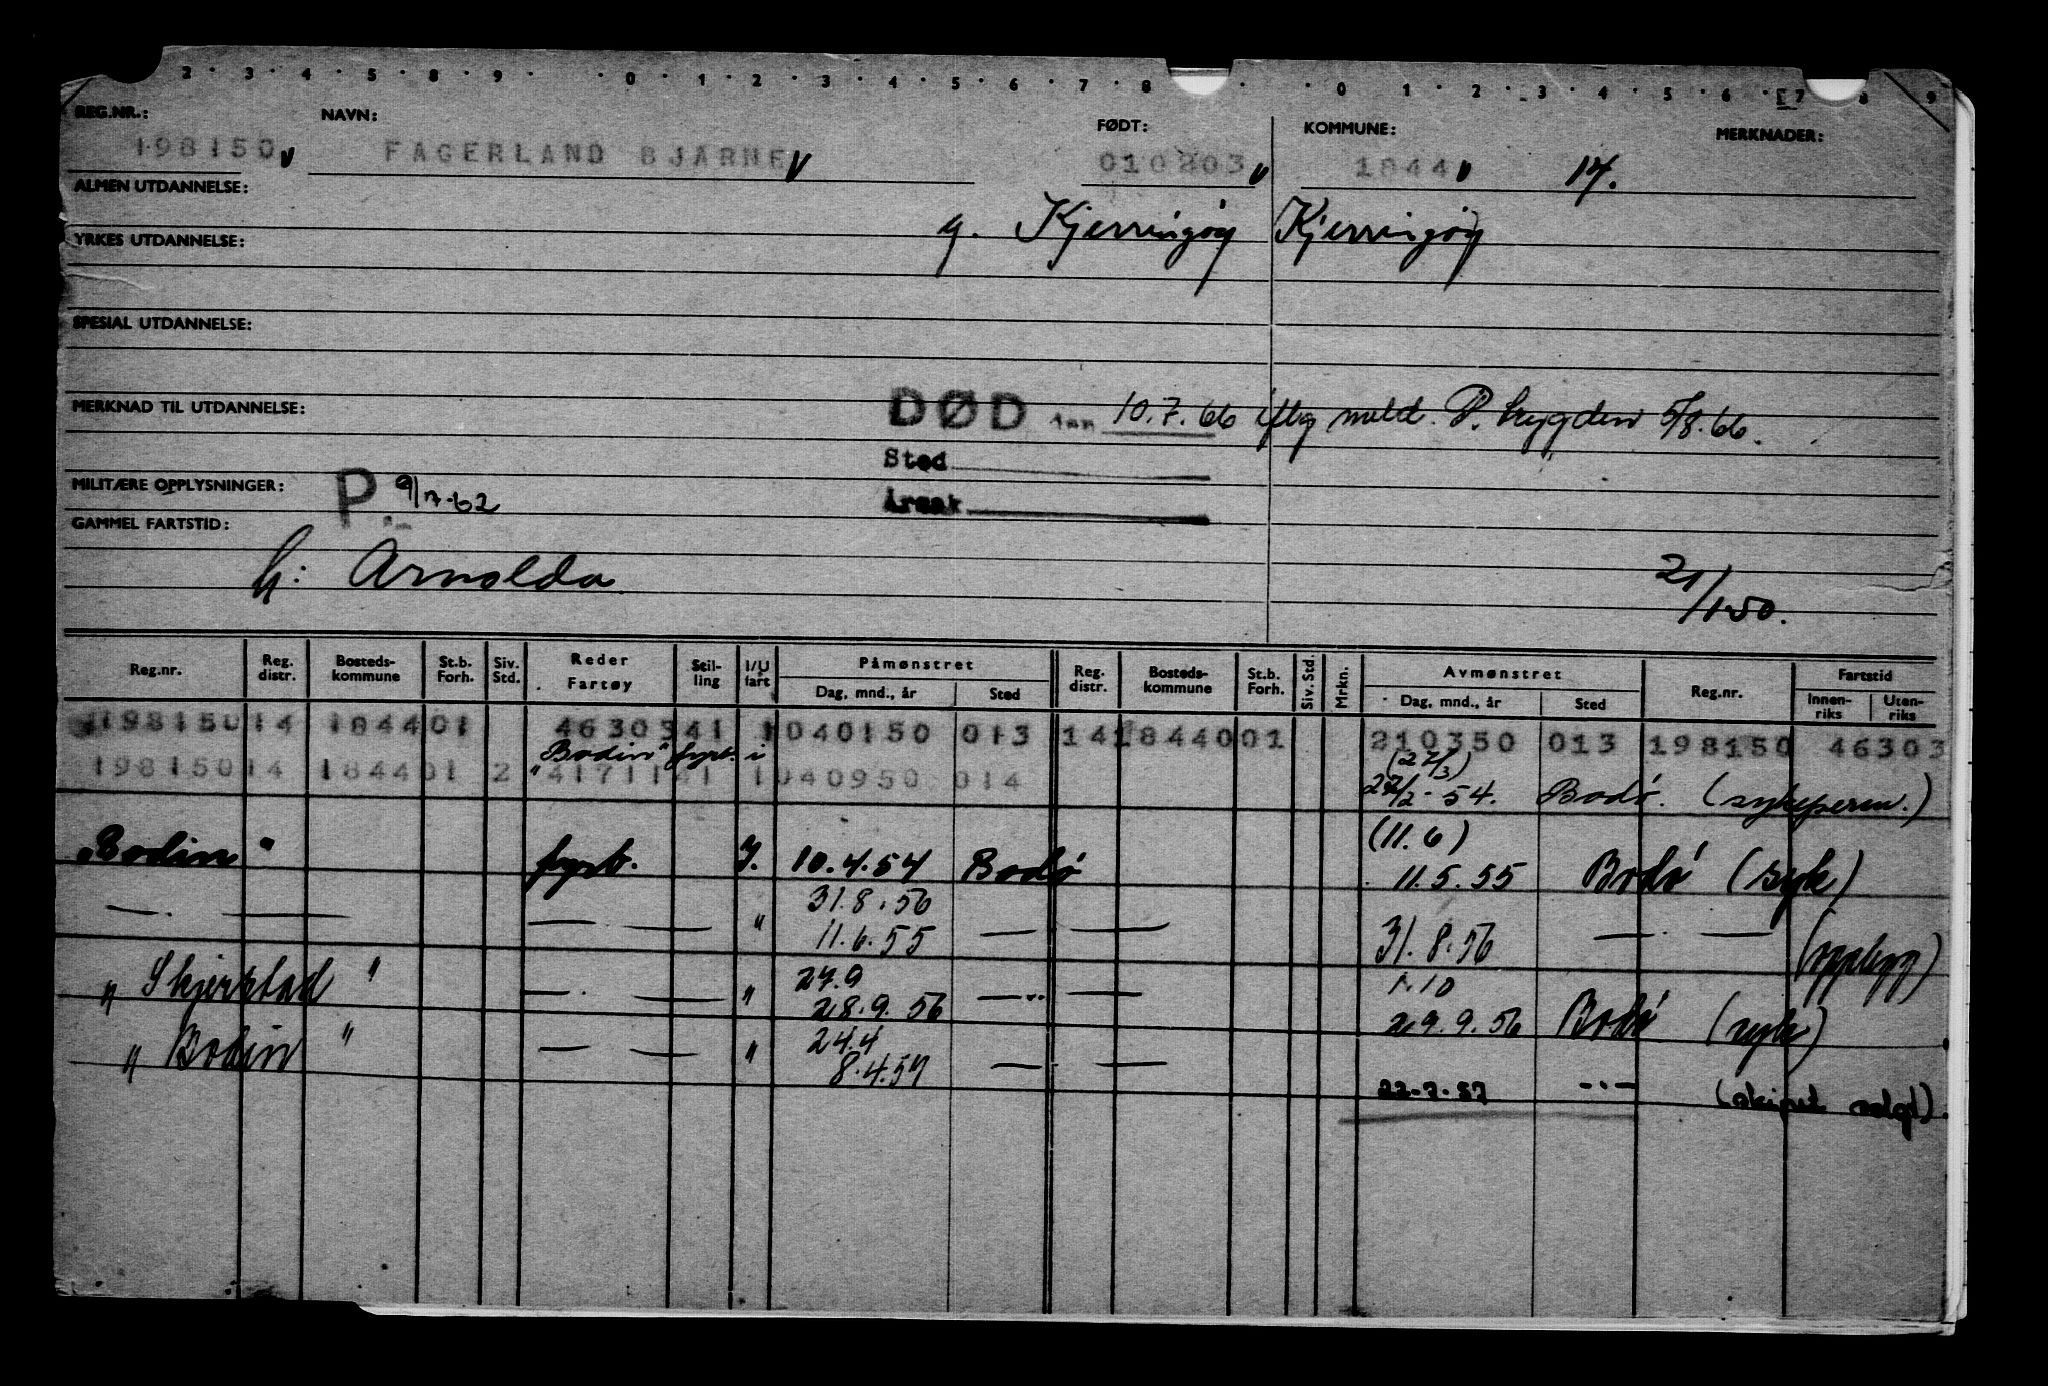 2 · 3 · 4 · 5 · 8 · 9 · · 0 · 1 · 2 · 3 · 4 · 5 · 6 · 7 · 8 · · 0 · 1 · 2 · 3 · 4 · 5 · 6 · 7 8 9
REG.NR.: NAVN: FØDT: KOMMUNE: MERKNADER:
198150 FAGERLAND BJARNE 010203 1844 17.
ALMEN UTDANNELSE:
g. Kjerringøy Kjerringøy
YRKES UTDANNELSE:
SPESIAL UTDANNELSE:
MERKNAD TIL UTDANNELSE: DØD den 10.7.66 iflg meld. P. trygden 5/8.66.
Sted
MILITÆRE OPPLYSNINGER: P. 9/7-62 Årsak
GAMMEL FARTSTID:
G: Arnolda 21/1-50.
Reg.nr. Reg. distr. Bosteds-kommune St.b. Forh. Siv. Std. Reder Fartøy Stil-ling I/U fart Påmønstret Dag, mnd., år Sted Reg. distr. Bosteds-kommune St.b. Forh. Siv. Std. Mrkn. Avmønstret Dag, mnd., år Sted Reg.nr. Fartstid Innen-riks Uten-riks
198150 14 1844 01 46303 41 1 040150 013 14 1844 0 01 210350 013 198150 46303
"Bodin" fyrb. i (27/3)
198150 14 1844 01 2 41711 41 1 040950 014 27/2-54. Bodø. (sykeperm.)
(11.6)
"Bodin" fyrb. I. 10.4.54 Bodø 11.5.55 Bodø (syk)
31.8.56
— . — — . — " 11.6.55 — . — 31.8.56 — . — (opplegg)
27.9 1.10
"Skjerstad" — . — " 28.9.56 — .. — 29.9.56 Bodø (syk)
24.4
"Bodin" — — " 8.4.57 — . — 22-7-57 -.- (skipet solgt).